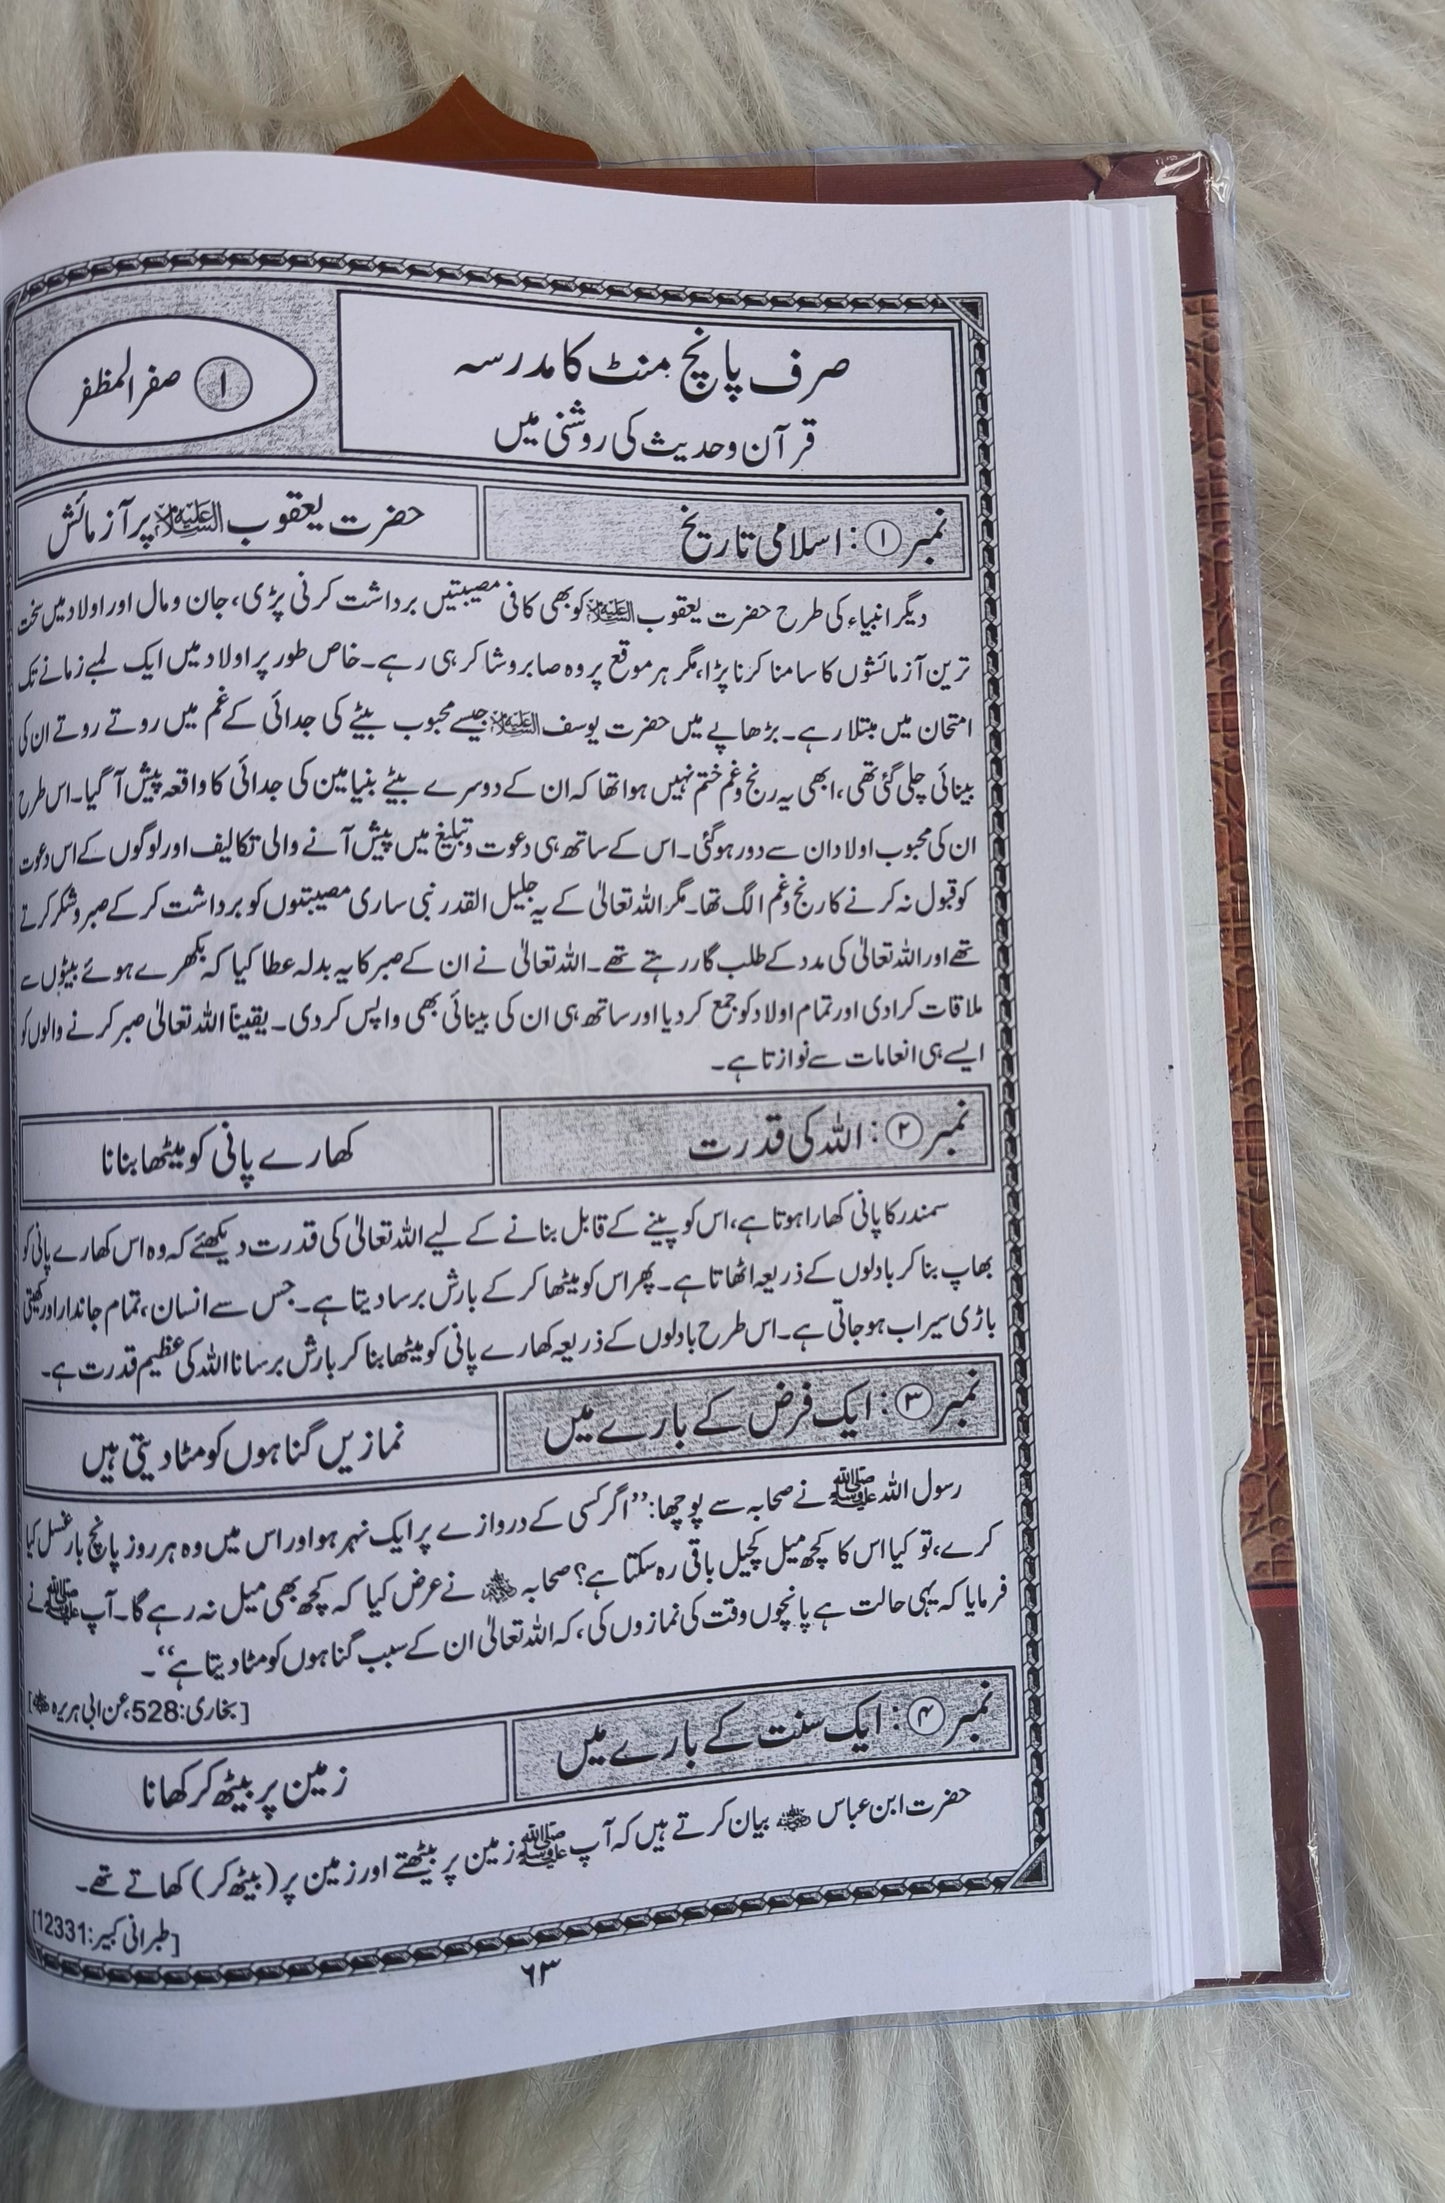 صرف پانچ منٹ کا مدرسہ
قرآن و حدیث کی روشنی میں
۱ صفر المظفر
نمبر ۱: اسلامی تاریخ
حضرت یعقوب علیہ السلام پر آزمائش
دیگر انبیاء کی طرح حضرت یعقوب علیہ السلام کو بھی کافی مصیبتیں برداشت کرنی پڑی، جان و مال اور اولاد میں سخت
ترین آزمائشوں کا سامنا کرنا پڑا، مگر ہر موقع پر وہ صابر و شاکر ہی رہے۔ خاص طور پر اولاد میں ایک لمبے زمانے تک
امتحان میں مبتلا رہے۔ بڑھاپے میں حضرت یوسف علیہ السلام جیسے محبوب بیٹے کی جدائی کے غم میں روتے روتے ان کی
بینائی چلی گئی تھی، ابھی یہ رنج و غم ختم نہیں ہوا تھا کہ ان کے دوسرے بیٹے بنیامین کی جدائی کا واقعہ پیش آ گیا۔ اس طرح
ان کی محبوب اولاد ان سے دور ہو گئی۔ اس کے ساتھ ہی دعوت و تبلیغ میں پیش آنے والی تکالیف اور لوگوں کے اس دعوت
کو قبول نہ کرنے کا رنج و غم الگ تھا۔ مگر اللہ تعالیٰ کے یہ جلیل القدر نبی ساری مصیبتوں کو برداشت کر کے صبر و شکر کرتے
تھے اور اللہ تعالیٰ کی مدد کے طلب گار رہتے تھے۔ اللہ تعالیٰ نے ان کے صبر کا یہ بدلہ عطا کیا کہ بکھرے ہوئے بیٹوں سے
ملاقات کرا دی اور تمام اولاد کو جمع کر دیا اور ساتھ ہی ان کی بینائی بھی واپس کر دی۔ یقیناً اللہ تعالیٰ صبر کرنے والوں کو
ایسے ہی انعامات سے نوازتا ہے۔
نمبر ۲: اللہ کی قدرت
کھارے پانی کو میٹھا بنانا
سمندر کا پانی کھارا ہوتا ہے، اس کو پینے کے قابل بنانے کے لیے اللہ تعالیٰ کی قدرت دیکھئے کہ وہ اس کھارے پانی کو
بھاپ بنا کر بادلوں کے ذریعہ اٹھاتا ہے۔ پھر اس کو میٹھا کر کے بارش برسا دیتا ہے۔ جس سے انسان، تمام جاندار اور کھیتی
باڑی سیراب ہو جاتی ہے۔ اس طرح بادلوں کے ذریعہ کھارے پانی کو میٹھا بنا کر بارش برسانا اللہ کی عظیم قدرت ہے۔
نمبر ۳: ایک فرض کے بارے میں
نمازیں گناہوں کو مٹا دیتی ہیں
رسول اللہ ﷺ نے صحابہ سے پوچھا: ”اگر کسی کے دروازے پر ایک نہر ہو اور اس میں وہ ہر روز پانچ بار غسل کیا
کرے، تو کیا اس کا کچھ میل کچیل باقی رہ سکتا ہے؟ صحابہ رضی اللہ عنہم نے عرض کیا کہ کچھ بھی میل نہ رہے گا۔ آپ ﷺ نے
فرمایا کہ یہی حالت ہے پانچوں وقت کی نمازوں کی، کہ اللہ تعالیٰ ان کے سبب گناہوں کو مٹا دیتا ہے“۔
[بخاری: 528، عن ابی ہریرہ رضی اللہ عنہ]
نمبر ۴: ایک سنت کے بارے میں
زمین پر بیٹھ کر کھانا
حضرت ابن عباس رضی اللہ عنہ بیان کرتے ہیں کہ آپ ﷺ زمین پر بیٹھتے اور زمین پر (بیٹھ کر) کھاتے تھے۔
[طبرانی کبیر: 12331]
۶۳